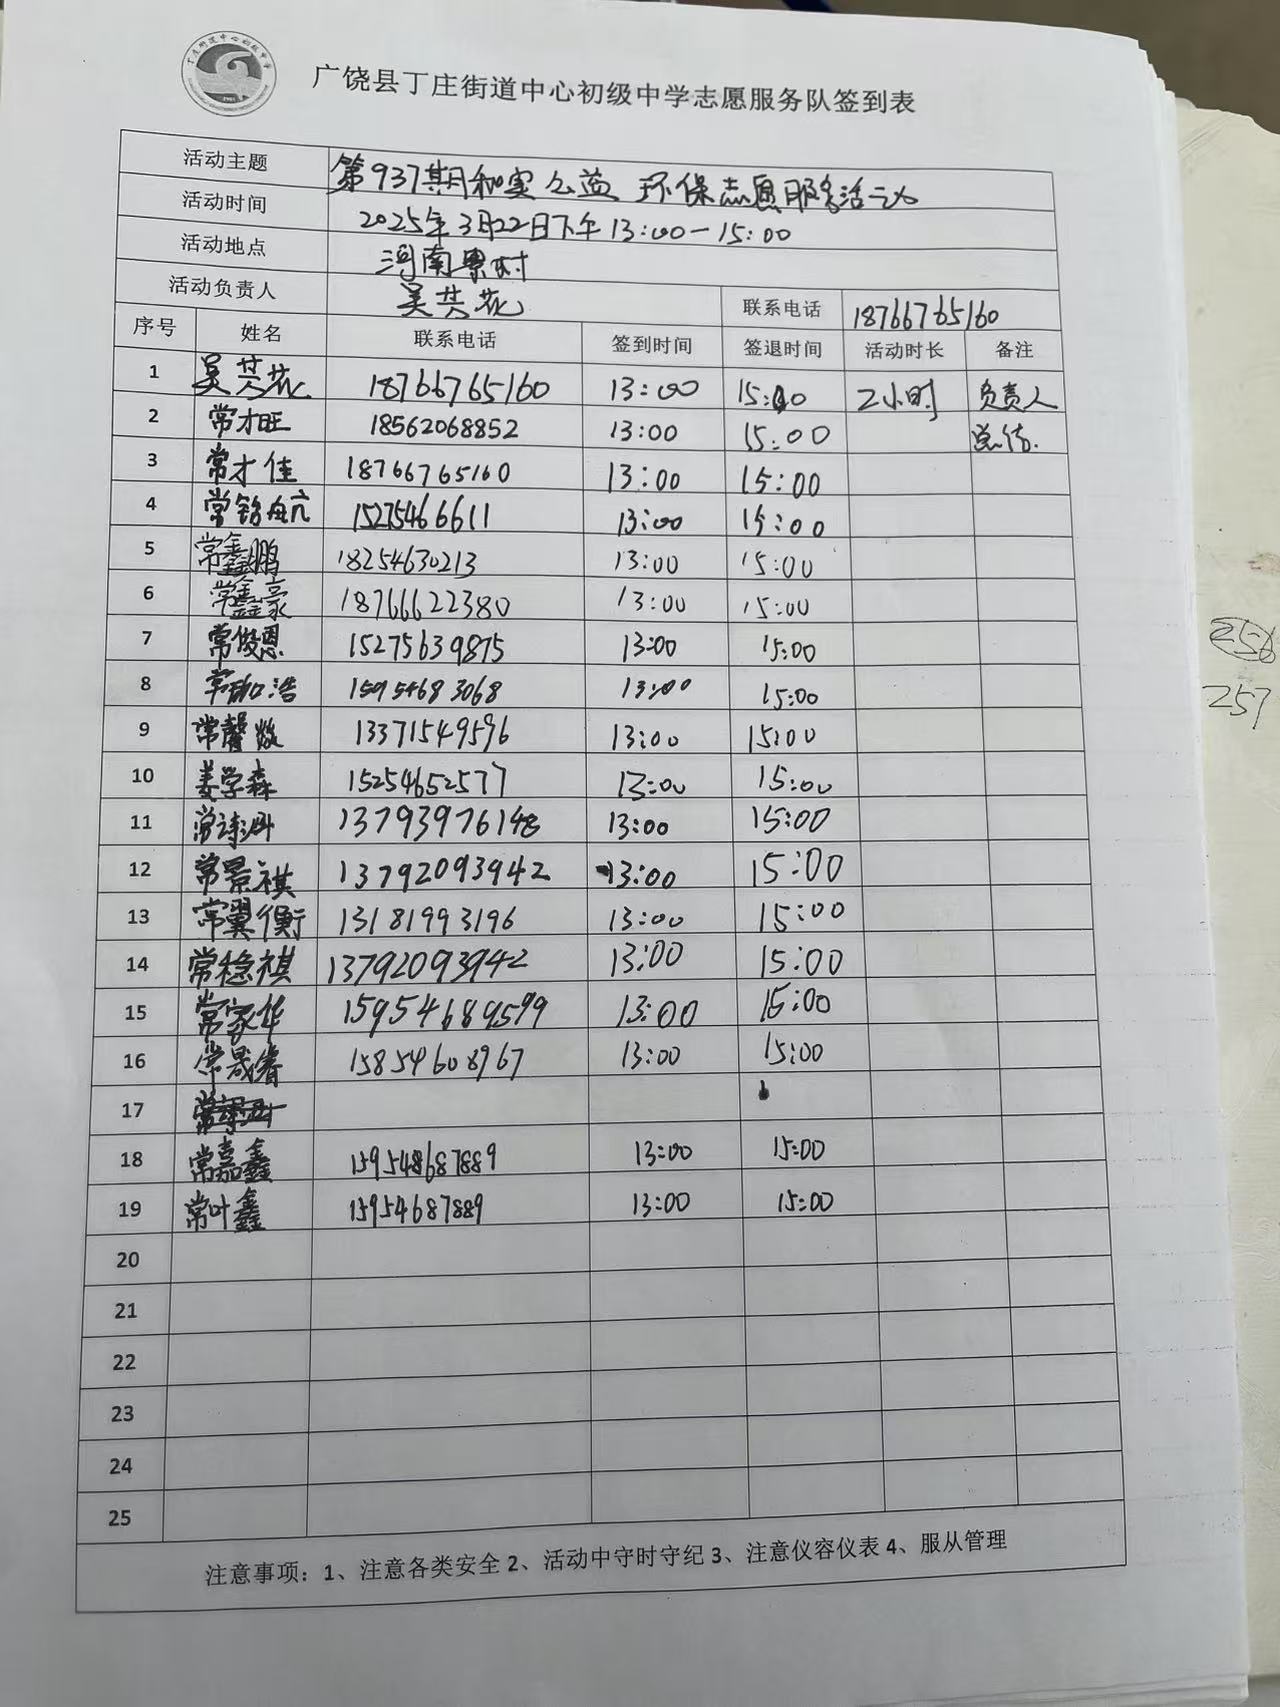 广饶县丁庄街道中心初级中学志愿服务队签到表
活动主题 第937期和实公益 环保志愿服务活动
活动时间 2025年3月22日下午13:00-15:00
活动地点 河南 村
活动负责人 吴芸花 联系电话 18766765160
序号 姓名 联系电话 签到时间 签退时间 活动时长 备注
1 吴芸花 18766765160 13:00 15:00 2小时 负责人
2 常才旺 18562068852 13:00 15:00
3 常才佳 18766765160 13:00 15:00
4 常铭航 15275466611 13:00 15:00
5 常鑫鹏 18254630213 13:00 15:00
6 常鑫豪 18766622380 13:00 15:00
7 常俊恩 15275639875 13:00 15:00
8 常珈浩 15954683068 13:00 15:00
9 常馨 13371549596 13:00 15:00
10 姜学森 15254652577 13:00 15:00
11 常 13793976148 13:00 15:00
12 常景祺 13792093942 13:00 15:00
13 常翼衡 13181993196 13:00 15:00
14 常稳祺 13792093942 13:00 15:00
15 常家华 15954689599 13:00 15:00
16 常晟睿 15854608967 13:00 15:00
17
18 常嘉鑫 159548687889 13:00 15:00
19 常叶鑫 15954687889 13:00 15:00
20
21
22
23
24
25
注意事项：1、注意各类安全 2、活动中守时守纪 3、注意仪容仪表 4、服从管理
256
257